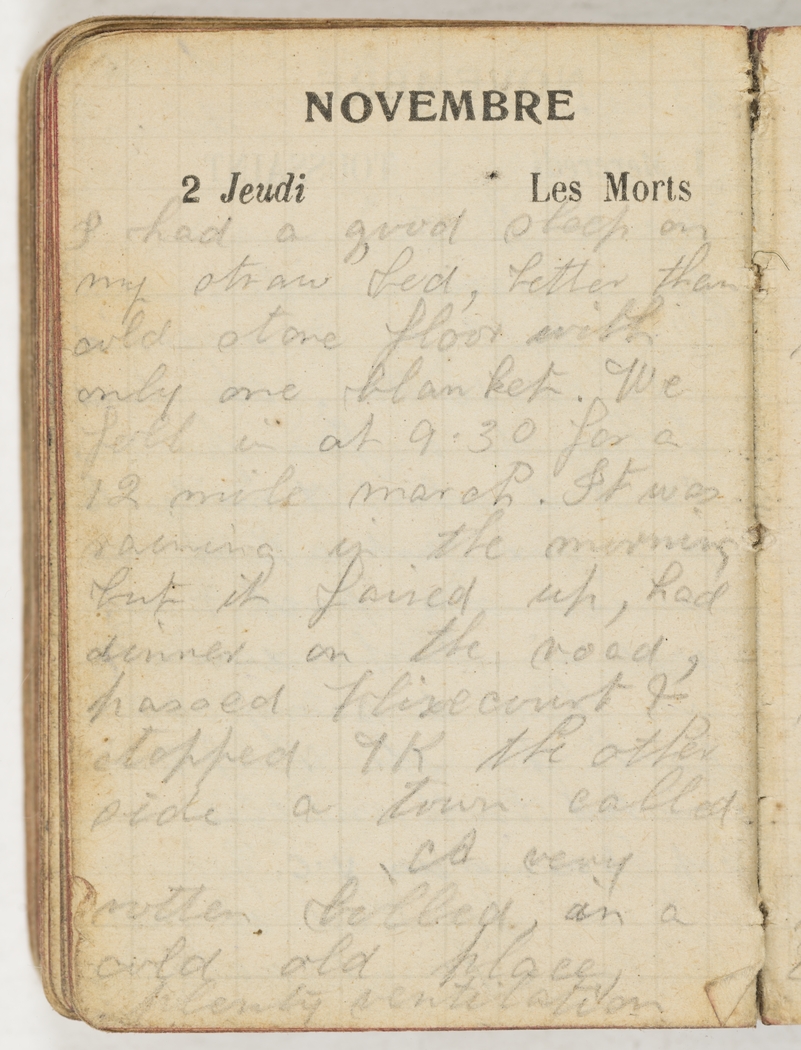 NOVEMBRE
2 Jeudi Les Morts
I had a good sleep on
my straw bed, better than
cold stone floor with
only one blanket. We
fell in at 9.30 for a
12 mile march. It was
raining in the morning
but it faired up, had
dinner on the road,
passed Flixecourt &
stopped 7K the other
side a town called
A very
rotten billed, in a
cold old place,
plenty ventilation